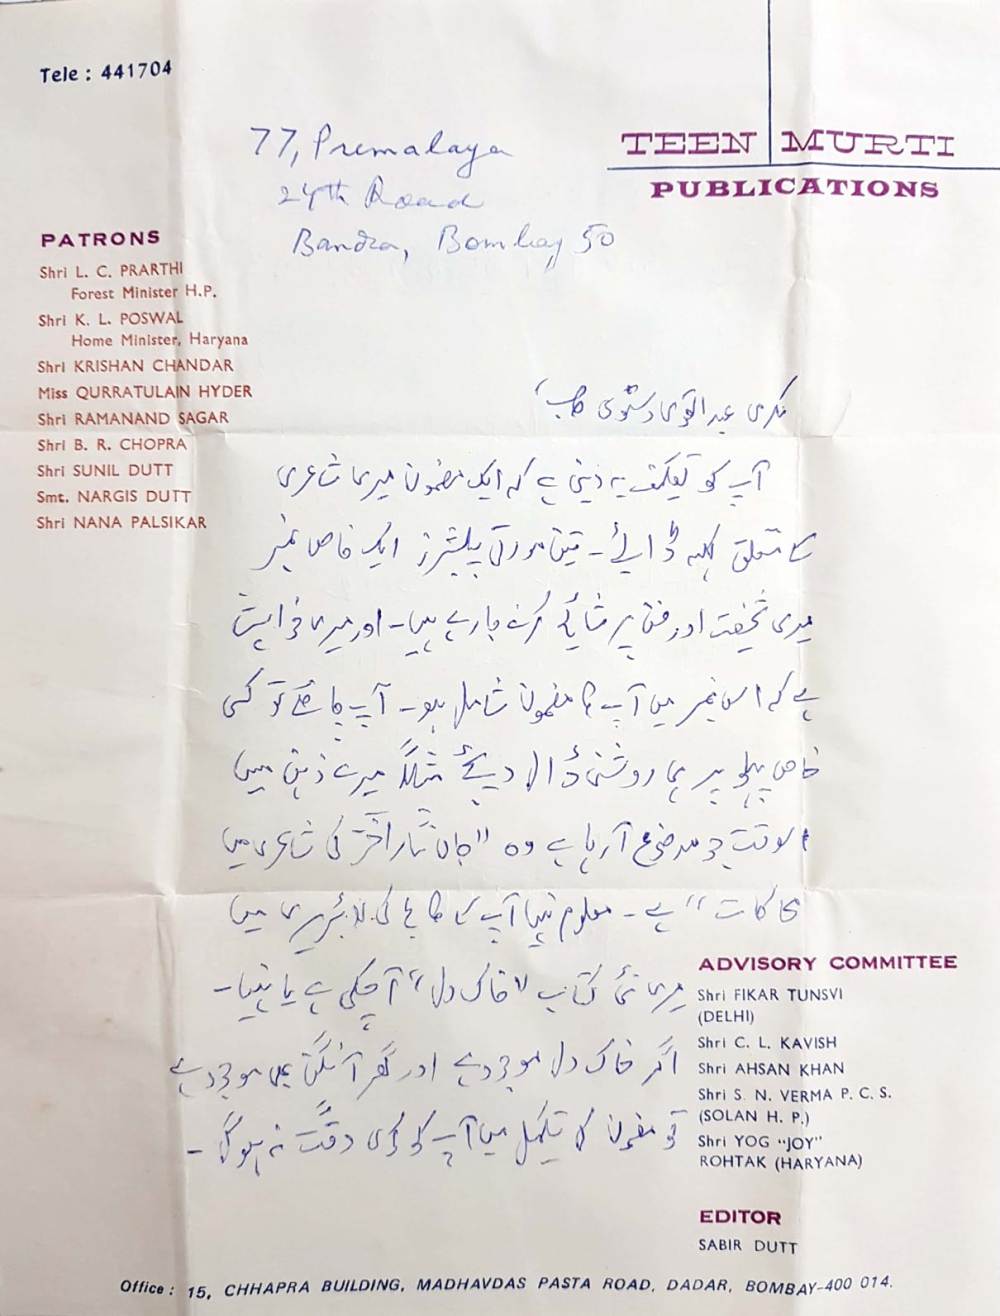 Tele : 441704
TEEN MURTI
PUBLICATIONS
77, Premalaya
24th Road
Bandra, Bombay 50
PATRONS
Shri L. C. PRARTHI
Forest Minister H.P.
Shri K. L. POSWAL
Home Minister, Haryana
Shri KRISHAN CHANDAR
Miss QURRATULAIN HYDER
Shri RAMANAND SAGAR
Shri B. R. CHOPRA
Shri SUNIL DUTT
Smt. NARGIS DUTT
Shri NANA PALSIKAR
مکرمی عبدالقوی دسنوی صاحب،
آپ کو تکلیف یہ دینی ہے کہ ایک مضمون میری شاعری
کے متعلق لکھ ڈالیے۔ تین مورتی پبلیشرز ایک خاص نمبر
میری شخصیت اور فن پر شائع کرنے جا رہے ہیں۔ اور میری خواہش
ہے کہ اس نمبر میں آپ کا مضمون شامل ہو۔ آپ چاہئے تو کسی
خاص پہلو پر ہی روشنی ڈال دیجئے مثلاً میرے ذہن میں
اسوقت جو موضوع آ رہا ہے وہ "جاں نثار اختر کی شاعری میں
محاکات" ہے۔ معلوم نہیں آپ کے ہاں کی لائبریری میں
میری نئی کتاب "خاک دل" آ چکی ہے یا نہیں۔
اگر خاک دل موجود ہے اور گھر آنگن بھی موجود ہے
تو مضمون کی تکمیل میں آپ کو کوئی دقت نہ ہوگی۔
ADVISORY COMMITTEE
Shri FIKAR TUNSVI
(DELHI)
Shri C. L. KAVISH
Shri AHSAN KHAN
Shri S. N. VERMA P. C. S.
(SOLAN H. P.)
Shri YOG "JOY"
ROHTAK (HARYANA)
EDITOR
SABIR DUTT
Office : 15, CHHAPRA BUILDING, MADHAVDAS PASTA ROAD, DADAR, BOMBAY-400 014.